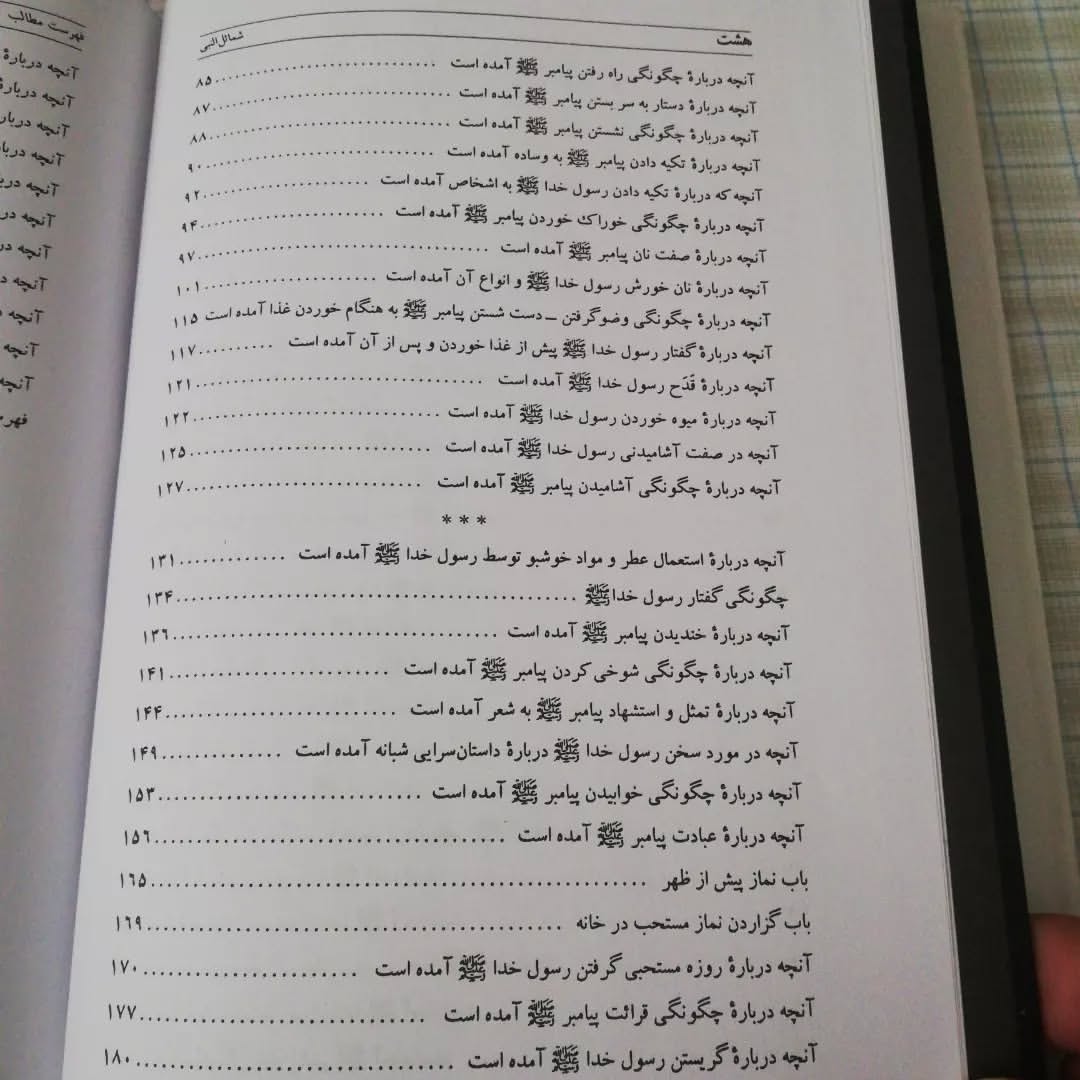 هشت
شمائل‌النبی
آنچه دربارهٔ چگونگی راه رفتن پیامبر ﷺ آمده است ..........................۸۵
آنچه دربارهٔ دستار به سر بستن پیامبر ﷺ آمده است ..........................۸۷
آنچه دربارهٔ چگونگی نشستن پیامبر ﷺ آمده است ..........................۸۸
آنچه دربارهٔ تکیه دادن پیامبر ﷺ به وساده آمده است ..........................۹۰
آنچه که دربارهٔ تکیه دادن رسول خدا ﷺ به اشخاص آمده است ....................۹۲
آنچه دربارهٔ چگونگی خوراک خوردن پیامبر ﷺ آمده است ....................۹۴
آنچه دربارهٔ صفت نان پیامبر ﷺ آمده است ..............................۹۷
آنچه دربارهٔ نان خورش رسول خدا ﷺ و انواع آن آمده است ....................۱۰۱
آنچه دربارهٔ چگونگی وضوگرفتن ــ دست شستن پیامبر ﷺ به هنگام خوردن غذا آمده است ۱۱۵
آنچه دربارهٔ گفتار رسول خدا ﷺ پیش از غذا خوردن و پس از آن آمده است ..........۱۱۷
آنچه دربارهٔ قَدَح رسول خدا ﷺ آمده است ..............................۱۲۱
آنچه دربارهٔ میوه خوردن رسول خدا ﷺ آمده است ..........................۱۲۲
آنچه در صفت آشامیدنی رسول خدا ﷺ آمده است ..........................۱۲۵
آنچه دربارهٔ چگونگی آشامیدن پیامبر ﷺ آمده است ..........................۱۲۷
* * *
آنچه دربارهٔ استعمال عطر و مواد خوشبو توسط رسول خدا ﷺ آمده است .............۱۳۱
چگونگی گفتار رسول خداﷺ ........................................۱۳۴
آنچه دربارهٔ خندیدن پیامبر ﷺ آمده است ................................۱۳۶
آنچه دربارهٔ چگونگی شوخی کردن پیامبر ﷺ آمده است ......................۱۴۱
آنچه دربارهٔ تمثل و استشهاد پیامبر ﷺ به شعر آمده است ......................۱۴۴
آنچه در مورد سخن رسول خدا ﷺ دربارهٔ داستان‌سرایی شبانه آمده است .............۱۴۹
آنچه دربارهٔ چگونگی خوابیدن پیامبر ﷺ آمده است ..........................۱۵۳
آنچه دربارهٔ عبادت پیامبر ﷺ آمده است ................................۱۵۶
باب نماز پیش از ظهر ..........................................۱۶۵
باب گزاردن نماز مستحب در خانه ....................................۱۶۹
آنچه دربارهٔ روزه مستحبی گرفتن رسول خدا ﷺ آمده است ....................۱۷۰
آنچه دربارهٔ چگونگی قرائت پیامبر ﷺ آمده است ..........................۱۷۷
آنچه دربارهٔ گریستن رسول خدا ﷺ آمده است ..........................۱۸۰
فهرست مطالب
آنچه دربارهٔ
آنچه دربارهٔ